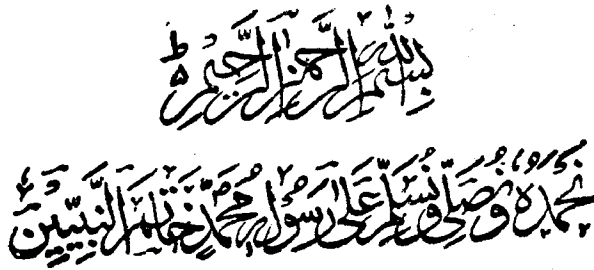 بِسْمِ اللهِ الرَّحْمٰنِ الرَّحِيْمِ ط
نَحْمَدُهٗ وَنُصَلِّيْ وَنُسَلِّمُ عَلٰى رَسُوْلِهٖ مُحَمَّدٍ خَاتَمِ النَّبِيّٖنَ